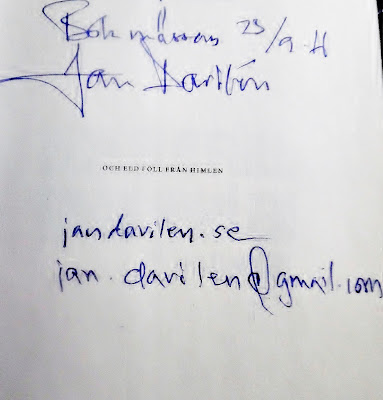 Bokmässan 23/9-11
Jan Davilén
OCH ELD FÖLL FRÅN HIMLEN
jandavilen.se
jan.davilen@gmail.com